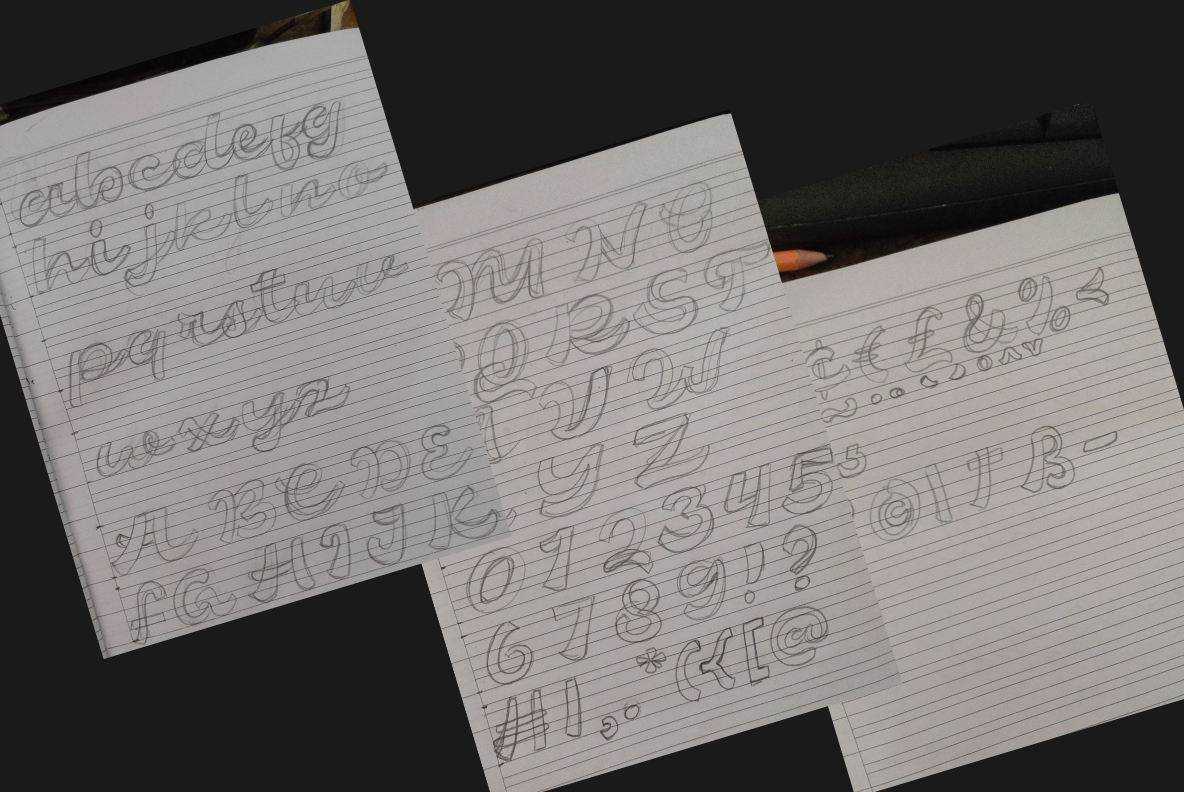 abcdefg
hijklno
pqrstuv
wxyz
ABCDE
FGHIJK
MNO
QRST
VW
YZ
012345
6789!?
*({[@
#|,.
¢€£&%<
~
©|†ß-